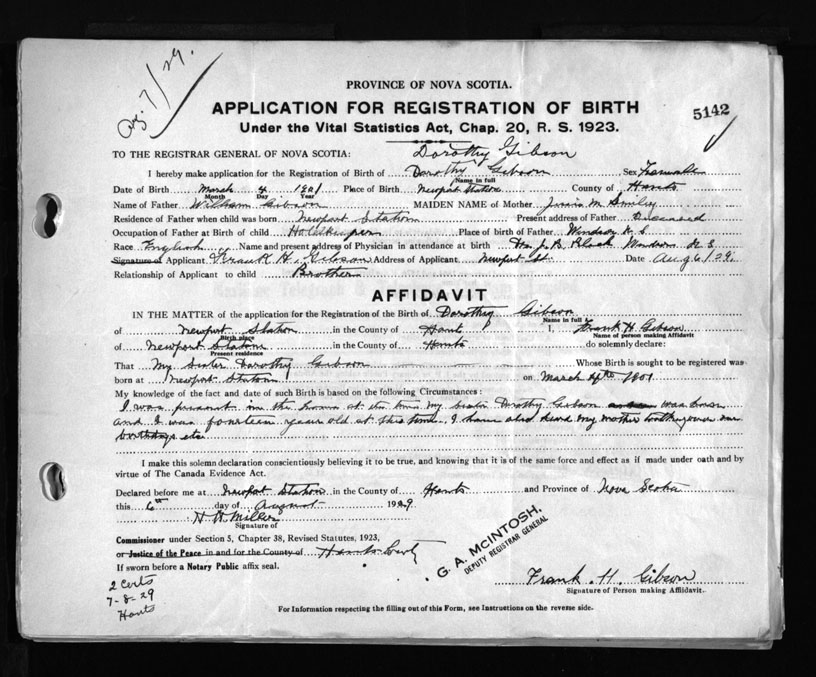 Aug. 7/29.
PROVINCE OF NOVA SCOTIA.
APPLICATION FOR REGISTRATION OF BIRTH
5142
Under the Vital Statistics Act, Chap. 20, R. S. 1923.
Dorothy Gibson
TO THE REGISTRAR GENERAL OF NOVA SCOTIA:
I hereby make application for the Registration of Birth of Dorothy Gibson Sex Female
Name in full
Date of Birth March 4 1901 Place of Birth Newport Station County of Hants
Month Day Year
Name of Father William Gibson MAIDEN NAME of Mother M. Smiley
Residence of Father when child was born Newport Station Present address of Father Deceased
Occupation of Father at Birth of child Hotelkeeper Place of birth of Father Windsor N S
Race English Name and present address of Physician in attendance at birth Dr. J. B. Black Windsor N S
Signature of Applicant Frank H. Gibson Address of Applicant Newport St. Date Aug 6/29.
Relationship of Applicant to child Brother
AFFIDAVIT
IN THE MATTER of the application for the Registration of the Birth of Dorothy Gibson
Name in full
of Newport Station in the County of Hants I, Frank H Gibson
Birth place Name of person making Affidavit
of Newport Station in the County of Hants do solemnly declare:
Present residence
That My Sister Dorothy Gibson Whose Birth is sought to be registered was
born at Newport Station on March 4th 1901
My knowledge of the fact and date of such Birth is based on the following Circumstances:
I was present in the house at the time my sister Dorothy Gibson was born
and I was fourteen years old at this time. I have also heard my mother talking over our
birthdays etc
I make this solemn declaration conscientiously believing it to be true, and knowing that it is of the same force and effect as if made under oath and by
virtue of The Canada Evidence Act.
Declared before me at Newport Station in the County of Hants and Province of Nova Scotia
this 6th day of August 1929
H W Miller
Signature of
Commissioner under Section 5, Chapter 38, Revised Statutes, 1923,
or Justice of the Peace in and for the County of Hants County
If sworn before a Notary Public affix seal.
G. A. McINTOSH,
DEPUTY REGISTRAR GENERAL
Frank H. Gibson
Signature of Person making Affidavit.
2 Certs
7-8-29
Hants
For Information respecting the filling out of this Form, see Instructions on the reverse side.